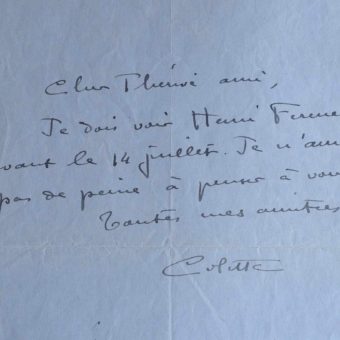 Cher Thérive ami,
Je dois voir Henri
avant le 14 juillet. Je n'au
pas de peine à penser à vou
Toutes mes amitiés
Colette